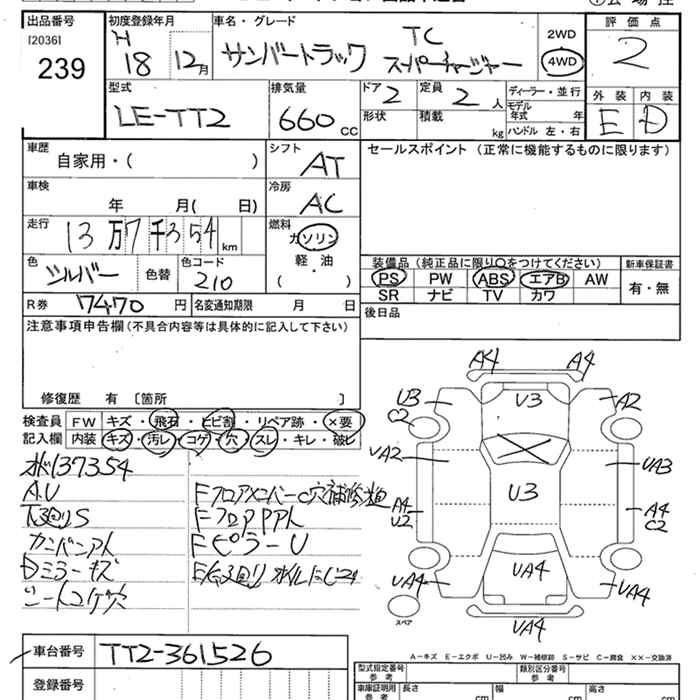 出品番号
[2036]
239
初度登録年月
H
18 12月
車名・グレード
TC
サンバートラック スーパーチャージャー
2WD
4WD
評価点
2
型式
LE-TT2
排気量
660 CC
ドア
2
定員
2 人
形状
積載
kg
ディーラー・並行
モデル年式 年
ハンドル 左・右
外装
E
内装
D
車歴
自家用・( )
シフト
AT
セールスポイント (正常に機能するものに限ります)
車検
年 月( 日)
冷房
AC
走行
13万7千354 km
燃料
ガソリン
軽・油
( )
色
シルバー
色替
色コード
210
装備品 (純正品に限り○をつけてください)
新車保証書
PS PW ABS エアB AW
有・無
SR ナビ TV カワ
R券 7470 円
名変通知期限 月 日
後日品
注意事項申告欄(不具合内容等は具体的に記入して下さい)
修復歴 有 [箇所 ]
検査員
記入欄
FW キズ・飛石・ヒビ割・リペア跡・×要
内装 キズ・汚レ・コゲ・穴・スレ・キレ・破レ
137354
A.U
下廻りS
カンバンアト
Dミラーキズ
シートコゲ穴
Fフロア
FフロアPアト
FピラーU
A4 A4
U3 V3 A2
C2
UA2 UA3
A4 U3 A4
U2 C2
UA4 UA4 UA4
UA4
スペア
A-キズ E-エクボ U-凹み W-補修跡 S-サビ C-腐食 XX-交換済
車台番号
TT2-361526
登録番号
型式指定番号
参考
類別区分番号
参考
車庫証明用
参考
長さ
cm
幅
cm
高さ
cm